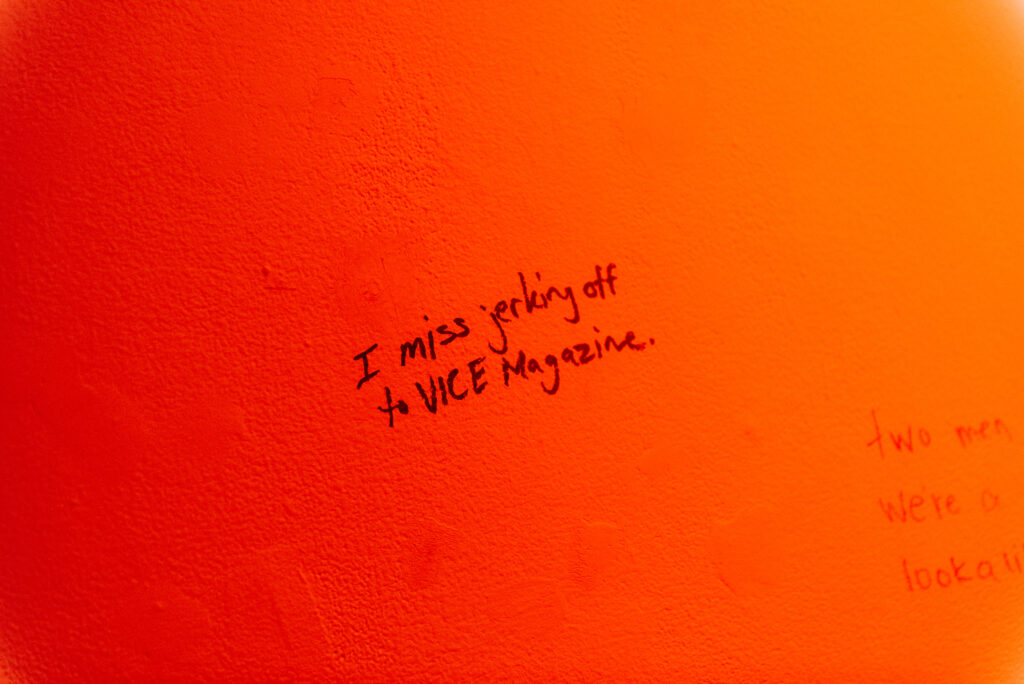 I miss jerking off
to VICE Magazine.
two men
we're a
lookali